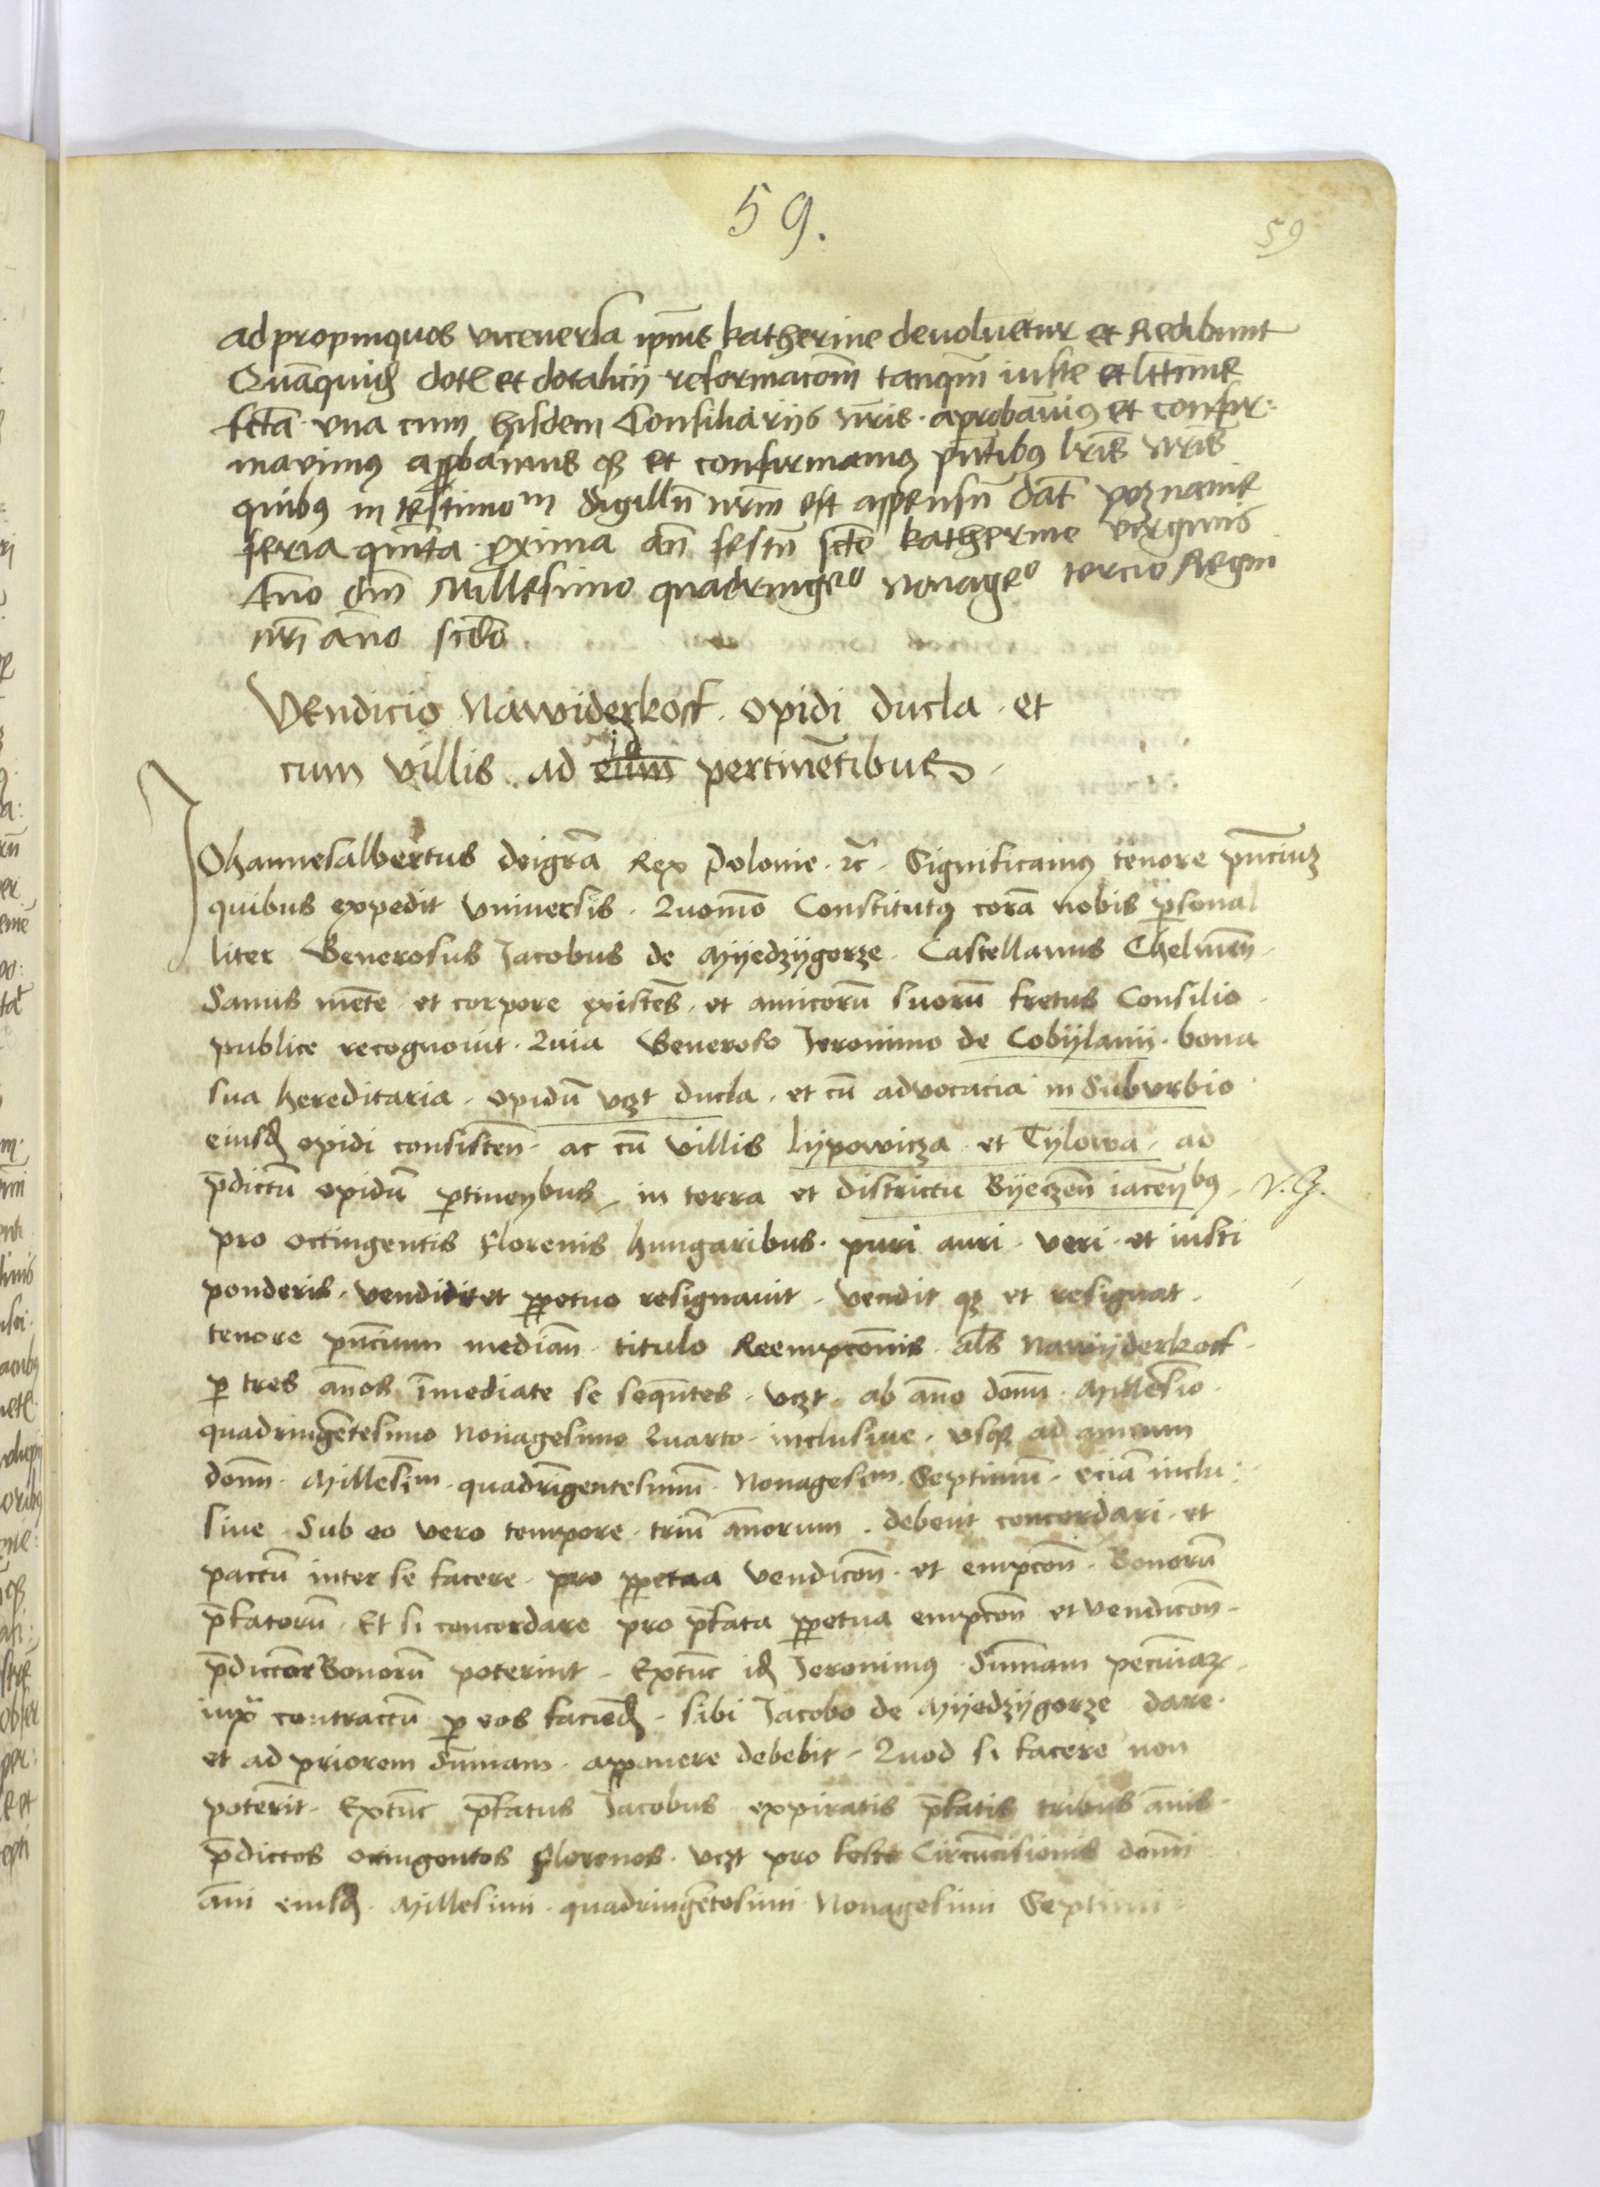 59.
59
ad propinquos viceversa ipīus katherine devoluetur et Redibunt
Quāquidē dotē et dotalicij reformacōm tanq̄m iuste et lttime
fctā vna cum hisdem Consiliarijs nr̄is aprobauim9 et confir:
mavimus apꝓbamus qȝ et confirmam9 pn̄tib9 lr̄is nr̄is
quib9 in testimoᵐ Sigillū nr̄m est appensū Dat̄ poznanie
feria quinta proxima an̄ festū sctē katherine virginis
Anno dn̄i Millesimo quadringeᵐᵒ nonageᵒ tercio Regni
nr̄i āno scdō
Vendicio Nawiderkoff opidi ducla et
cum villis ad id eum pertinētibus
Johannesalbertus deigrā Rex Polonie ꝛc̄ Significam9 tenore pn̄ciuȝ
quibus expedit vniversis Quomō Constitut9 corā nobis ꝑsonal
liter Generosus Jacobus de Myedzygorze Castellanus Chelmen̄
Sanus mēte et corpore existēs et amicorū suorū fretus Consilio
publice recognovit Quia Generoso Jeronimo de Cobylanij bona
sua hereditaria opidū vꝫt ducla et cū advocacia in Suburbio
eiusdē opidi consistēn ac cū villis Lypowicza et Tylowa ad
p̄dictū opidū ꝑtineñbus in terra et districtu Byeczen̄ iaceñb9
V. G.
pro octingentis florenis hungaribus puri auri veri et iusti
ponderis vendidit et ꝑpetuo resignavit vendit qȝ et resignat
tenore pn̄cium median̄ titulo Reempcōnis als Nawyderkoff
ꝑ tres ānos īmediate se seqūtes vꝫt ab āno domī Millesīo
quadringētesimo Nonagesimo Quarto inclusive vsqȝ ad annum
domī Millesīᵐ quadrīgentesimū Nonagesiᵐ Septimū eciā inclu:
sive Sub eo vero tempore triū ānorum debent concordari et
pactū inter se facere pro ꝑpetua vendicōn et empcōn Bonorū
p̄fatorū Et si concordare pro p̄fata ꝑpetua empcōn et vendicōn
p̄dictorꝝ Bonorū poterint Extūc idē Jeronim9 Sūmam pecūiaꝝ
iuxᵃ contractū ꝑ eos faciēdū sibi Jacobo de Myedzygorze dare
et ad priorem Sūmam apponere debebit Quod si facere non
poterīt Extūc p̄fatus Jacobus expiratis p̄fatis tribus ānis
p̄dictos octingentos florenos vꝫt pro festo Circūcisionis domī
āni eiusdē Millesimi quadringētesimi Nonagesimi Septimi